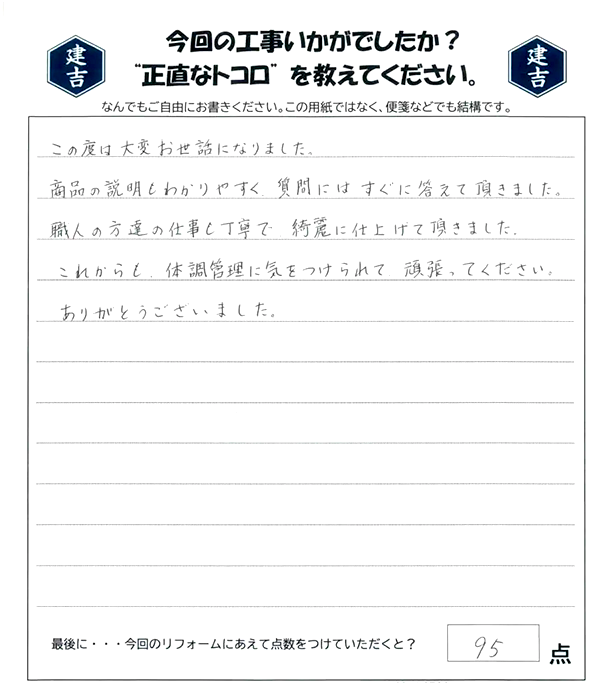 今回の工事いかがでしたか？
建吉
“正直なトコロ”を教えてください。
建吉
なんでもご自由にお書きください。この用紙ではなく、便箋などでも結構です。
この度は大変お世話になりました。
商品の説明もわかりやすく、質問にはすぐに答えて頂きました。
職人の方達の仕事も丁寧で、綺麗に仕上げて頂きました。
これからも、体調管理に気をつけられて頑張ってください。
ありがとうございました。
最後に・・・今回のリフォームにあえて点数をつけていただくと？ 95 点